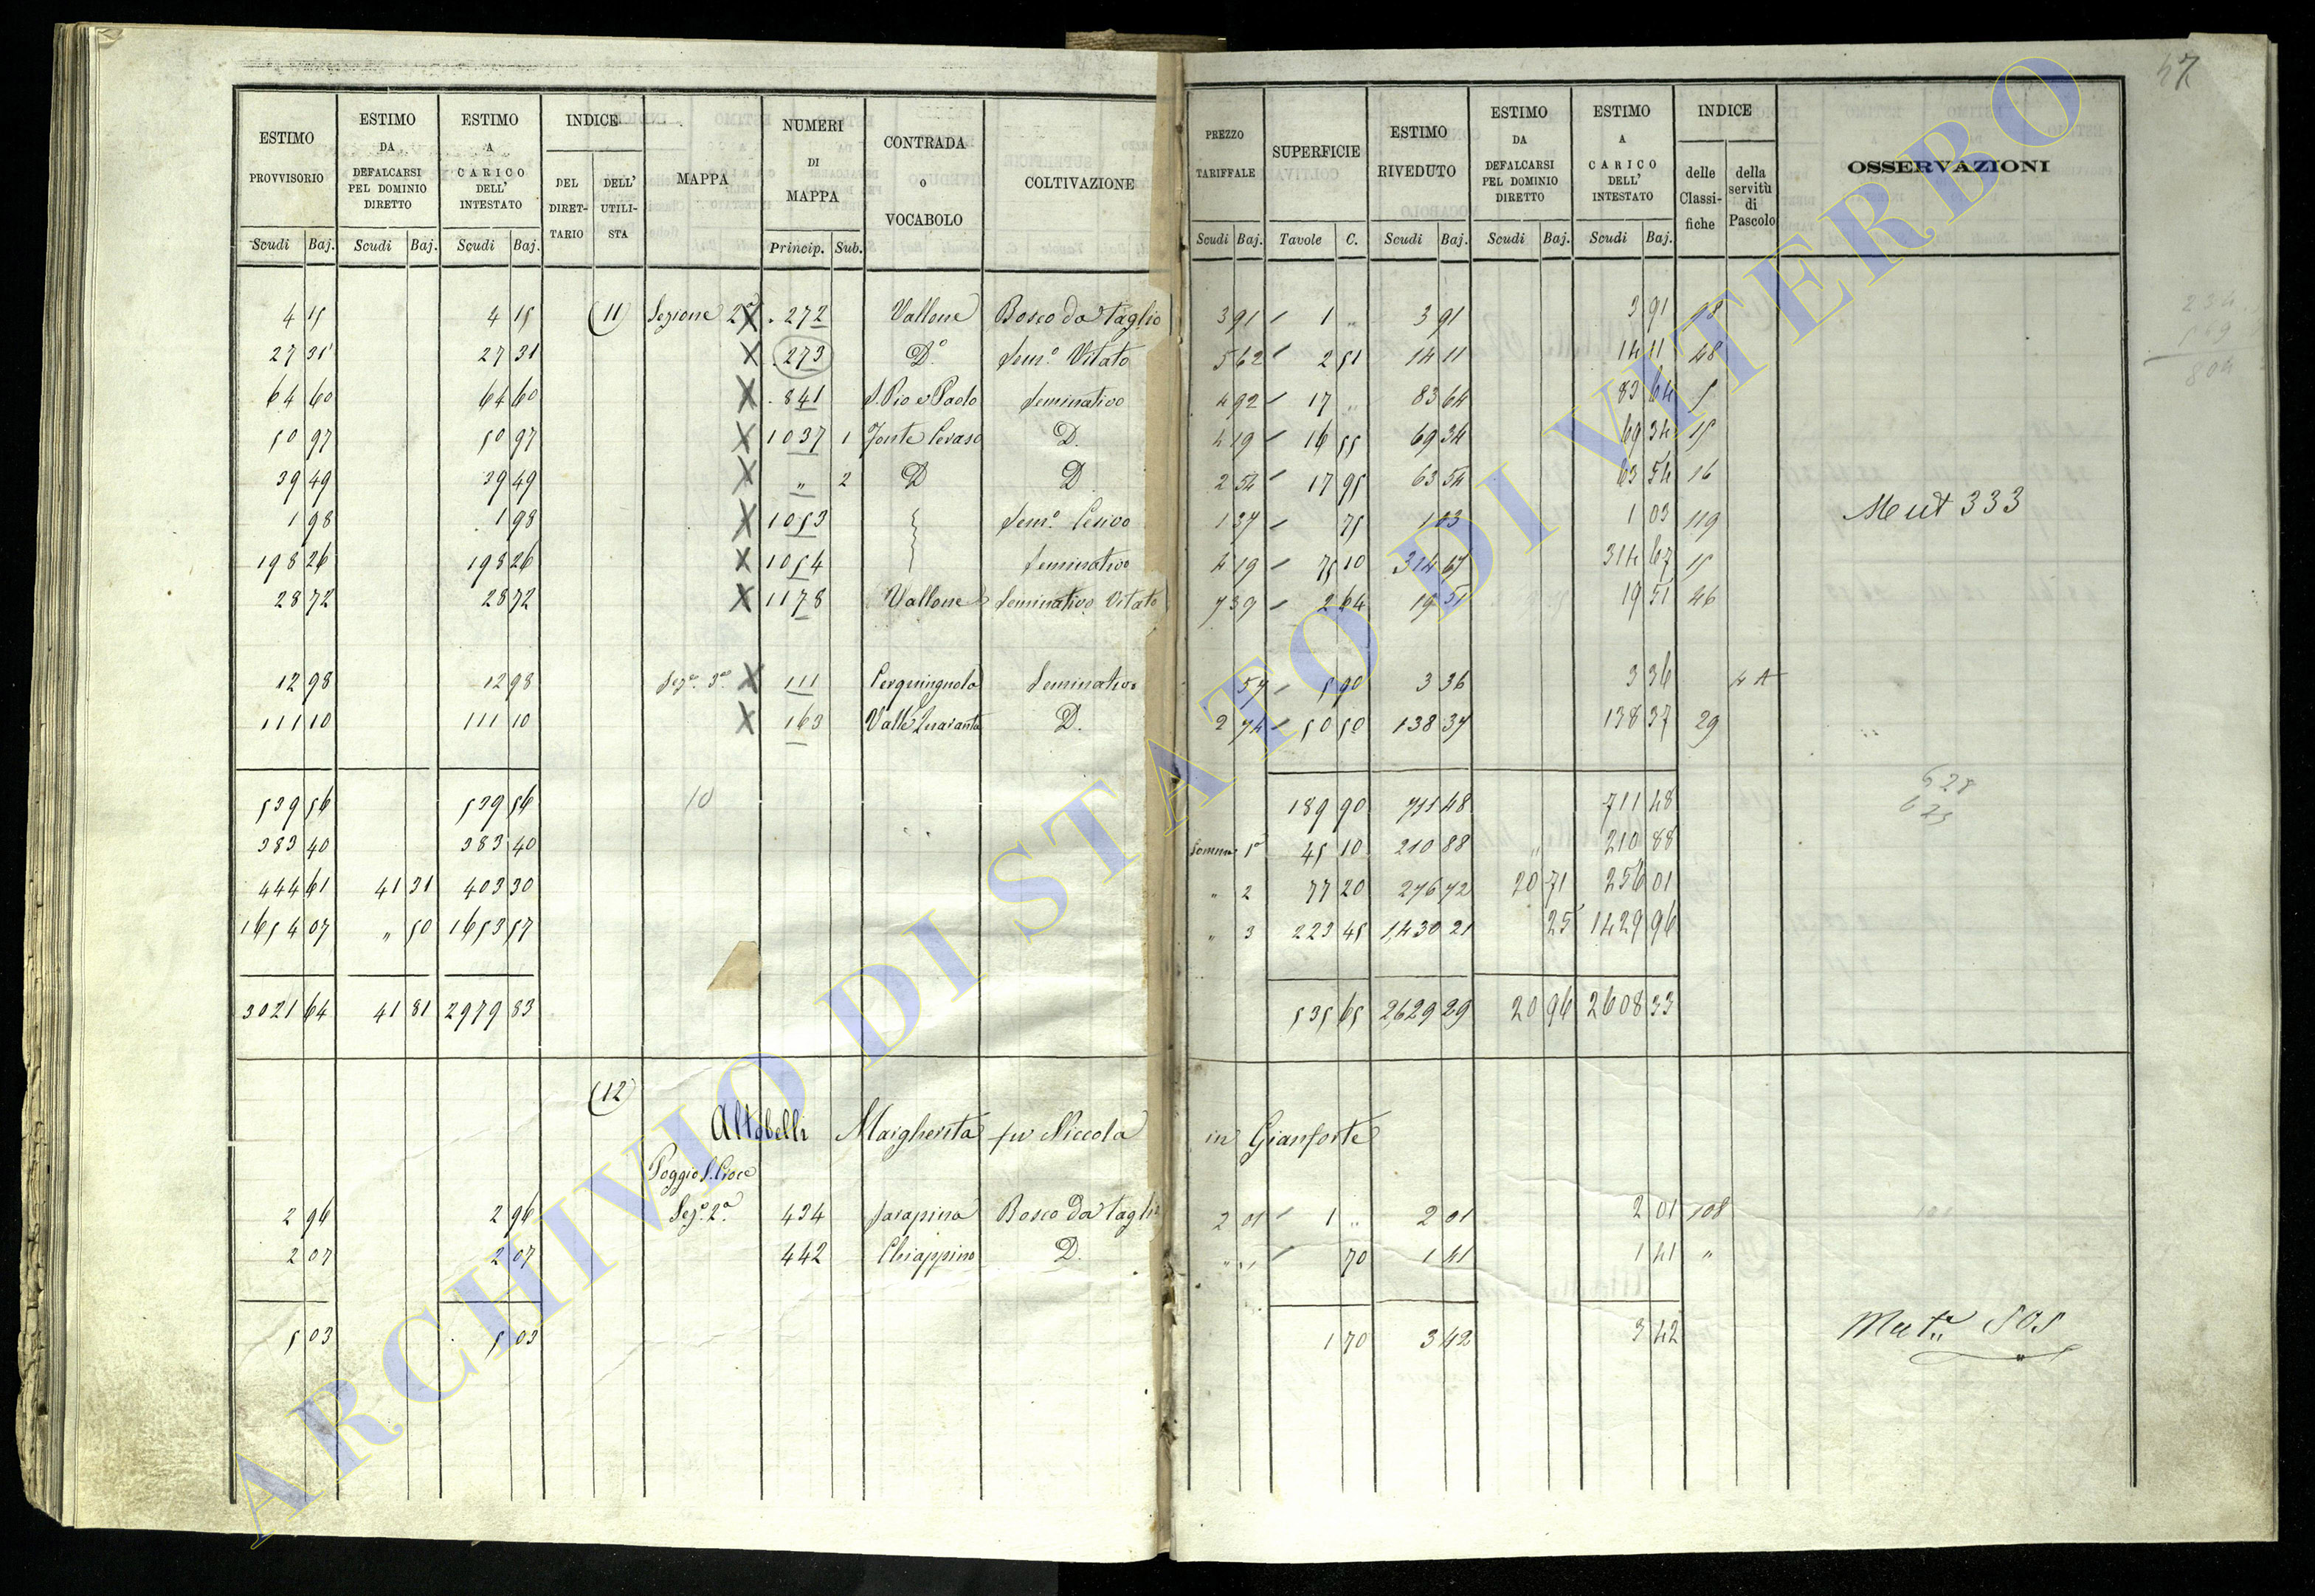 47
ESTIMO PROVVISORIO | ESTIMO DA DEFALCARSI PEL DOMINIO DIRETTO | ESTIMO A CARICO DELL' INTESTATO | INDICE | MAPPA | NUMERI DI MAPPA | CONTRADA O VOCABOLO | COLTIVAZIONE | PREZZO TARIFFALE | SUPERFICIE | ESTIMO RIVEDUTO | ESTIMO DA DEFALCARSI PEL DOMINIO DIRETTO | ESTIMO A CARICO DELL' INTESTATO | INDICE | OSSERVAZIONI
DEL DIRETTARIO | DELL' UTILISTA | delle Classifiche | della servitù di Pascolo
Scudi Baj. | Scudi Baj. | Scudi Baj. | Princip. Sub. | Scudi Baj. | Tavole C. | Scudi Baj. | Scudi Baj. | Scudi Baj.
4 15 | 4 15 | (11) | Sezione 2ª X | 272 | Vallone | Bosco da taglio | 3 91 | 1 „ | 3 91 | 3 91 | 98
27 31 | 27 31 | X | 273 | Dº | Semº Vitato | 5 62 | 2 51 | 14 11 | 14 11 | 48
64 60 | 64 60 | X | 841 | S. Pio e Paolo | Seminativo | 4 92 | 17 „ | 83 64 | 83 64 | 5
50 97 | 50 97 | X | 1037 | 1 | Fonte Ceraso | D. | 4 19 | 16 55 | 69 34 | 69 34 | 15
39 49 | 39 49 | X | „ | 2 | D | D | 2 54 | 17 95 | 63 54 | 63 54 | 16
1 98 | 1 98 | X | 1053 | Semº Cesivo | 1 37 | 75 | 1 03 | 1 03 | 119 | Mut 333
198 26 | 198 26 | X | 1054 | Seminativo | 4 19 | 75 10 | 314 67 | 314 67 | 15
28 72 | 28 72 | X | 1178 | Vallone | Seminativo Vitato | 7 39 | 2 64 | 19 51 | 19 51 | 46
12 98 | 12 98 | Sezº 3ª X | 111 | Seminativo | 57 | 5 90 | 3 36 | 3 36 | 4 A
111 10 | 111 10 | X | 163 | D. | 2 74 | 50 50 | 138 37 | 138 37 | 29
539 56 | 539 56 | 10 | 189 90 | 711 48 | 711 48
383 40 | 383 40 | Somma 1ª | 45 10 | 210 88 | „ | 210 88
444 61 | 41 31 | 403 30 | „ 2 | 77 20 | 276 72 | 20 71 | 256 01
1654 07 | „ 50 | 1653 57 | „ 3 | 223 45 | 1,430 21 | 25 | 1429 96
3021 64 | 41 81 | 2979 83 | 535 65 | 2,629 29 | 20 96 | 2608 33
(12)
Altobelli Margherita fu Niccola in Gianforte
Poggio S. Croce
2 96 | 2 96 | Sezº 2ª | 434 | Sarapina | Bosco da taglio | 2 01 | 1 „ | 2 01 | 2 01 | 108
2 07 | 2 07 | 442 | Chiappino | D. | „ „ | 70 | 1 41 | 1 41 | „
5 03 | 5 03 | 1 70 | 3 42 | 3 42 | Mut. 505
ARCHIVIO DI STATO DI VITERBO